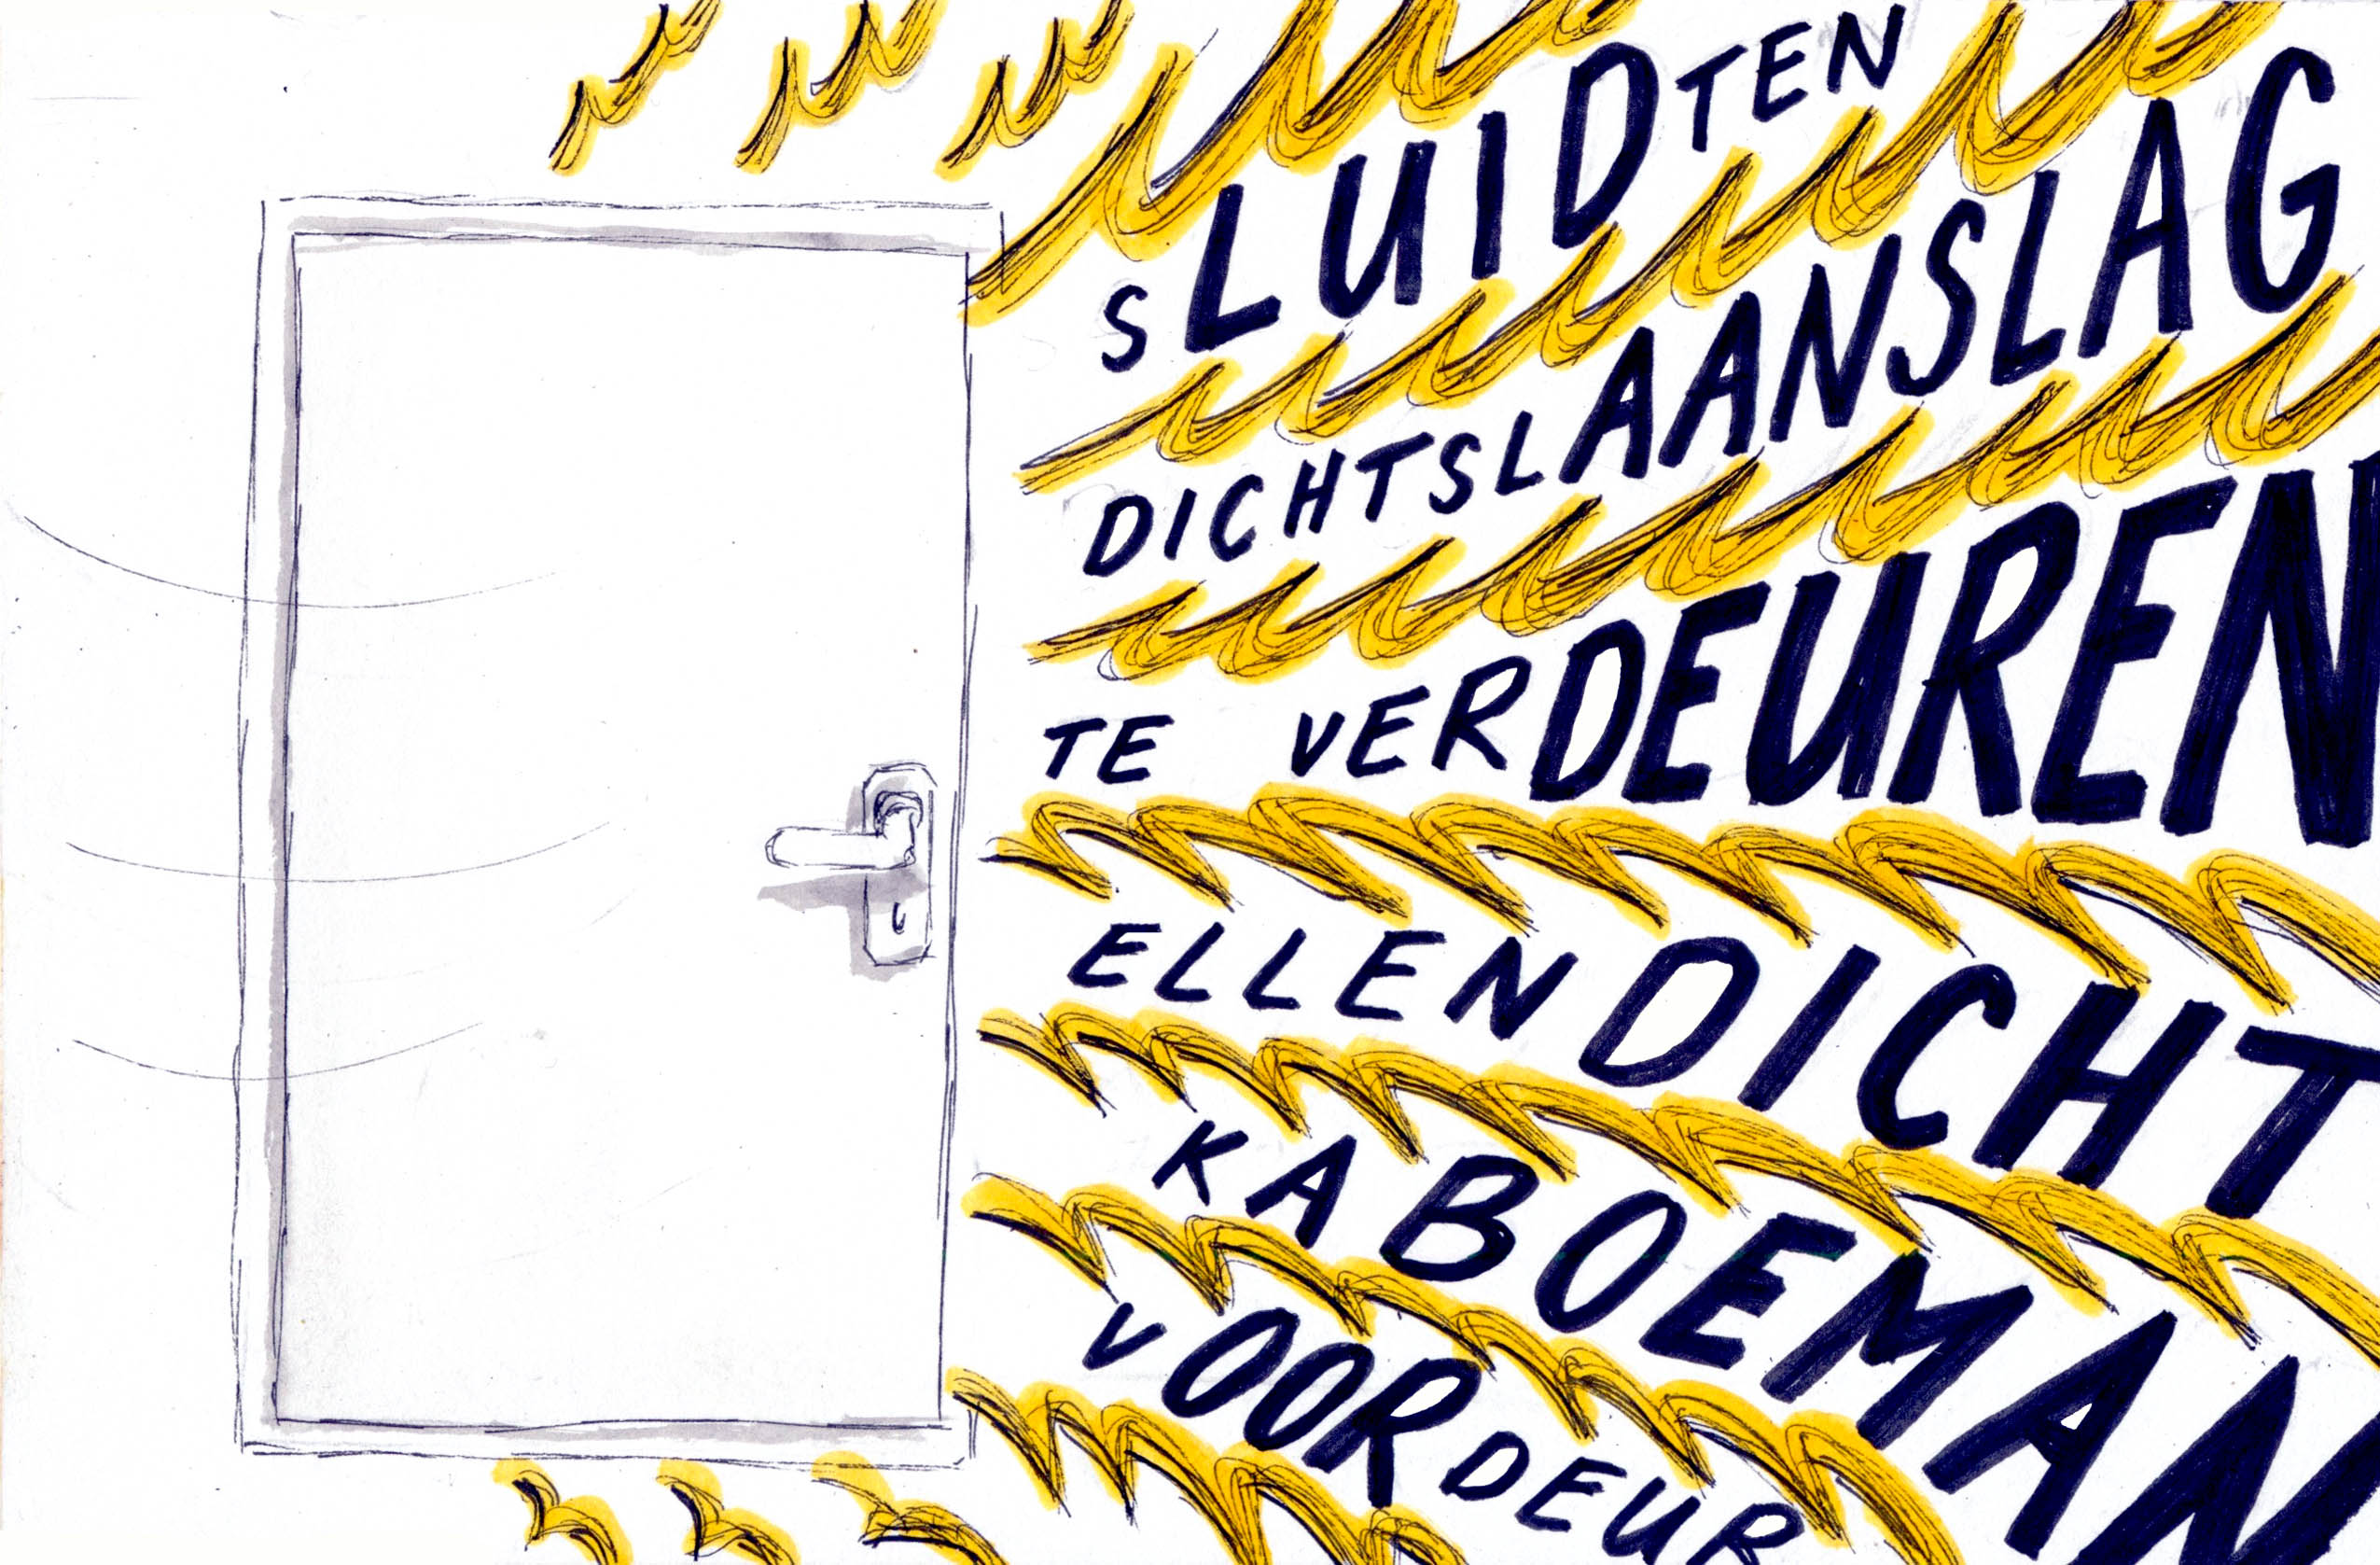 SLUIDTEN
DICHTSLAANSLAG
TE VERDEUREN
ELLENDICHT
KABOEMAN
VOORDEUR